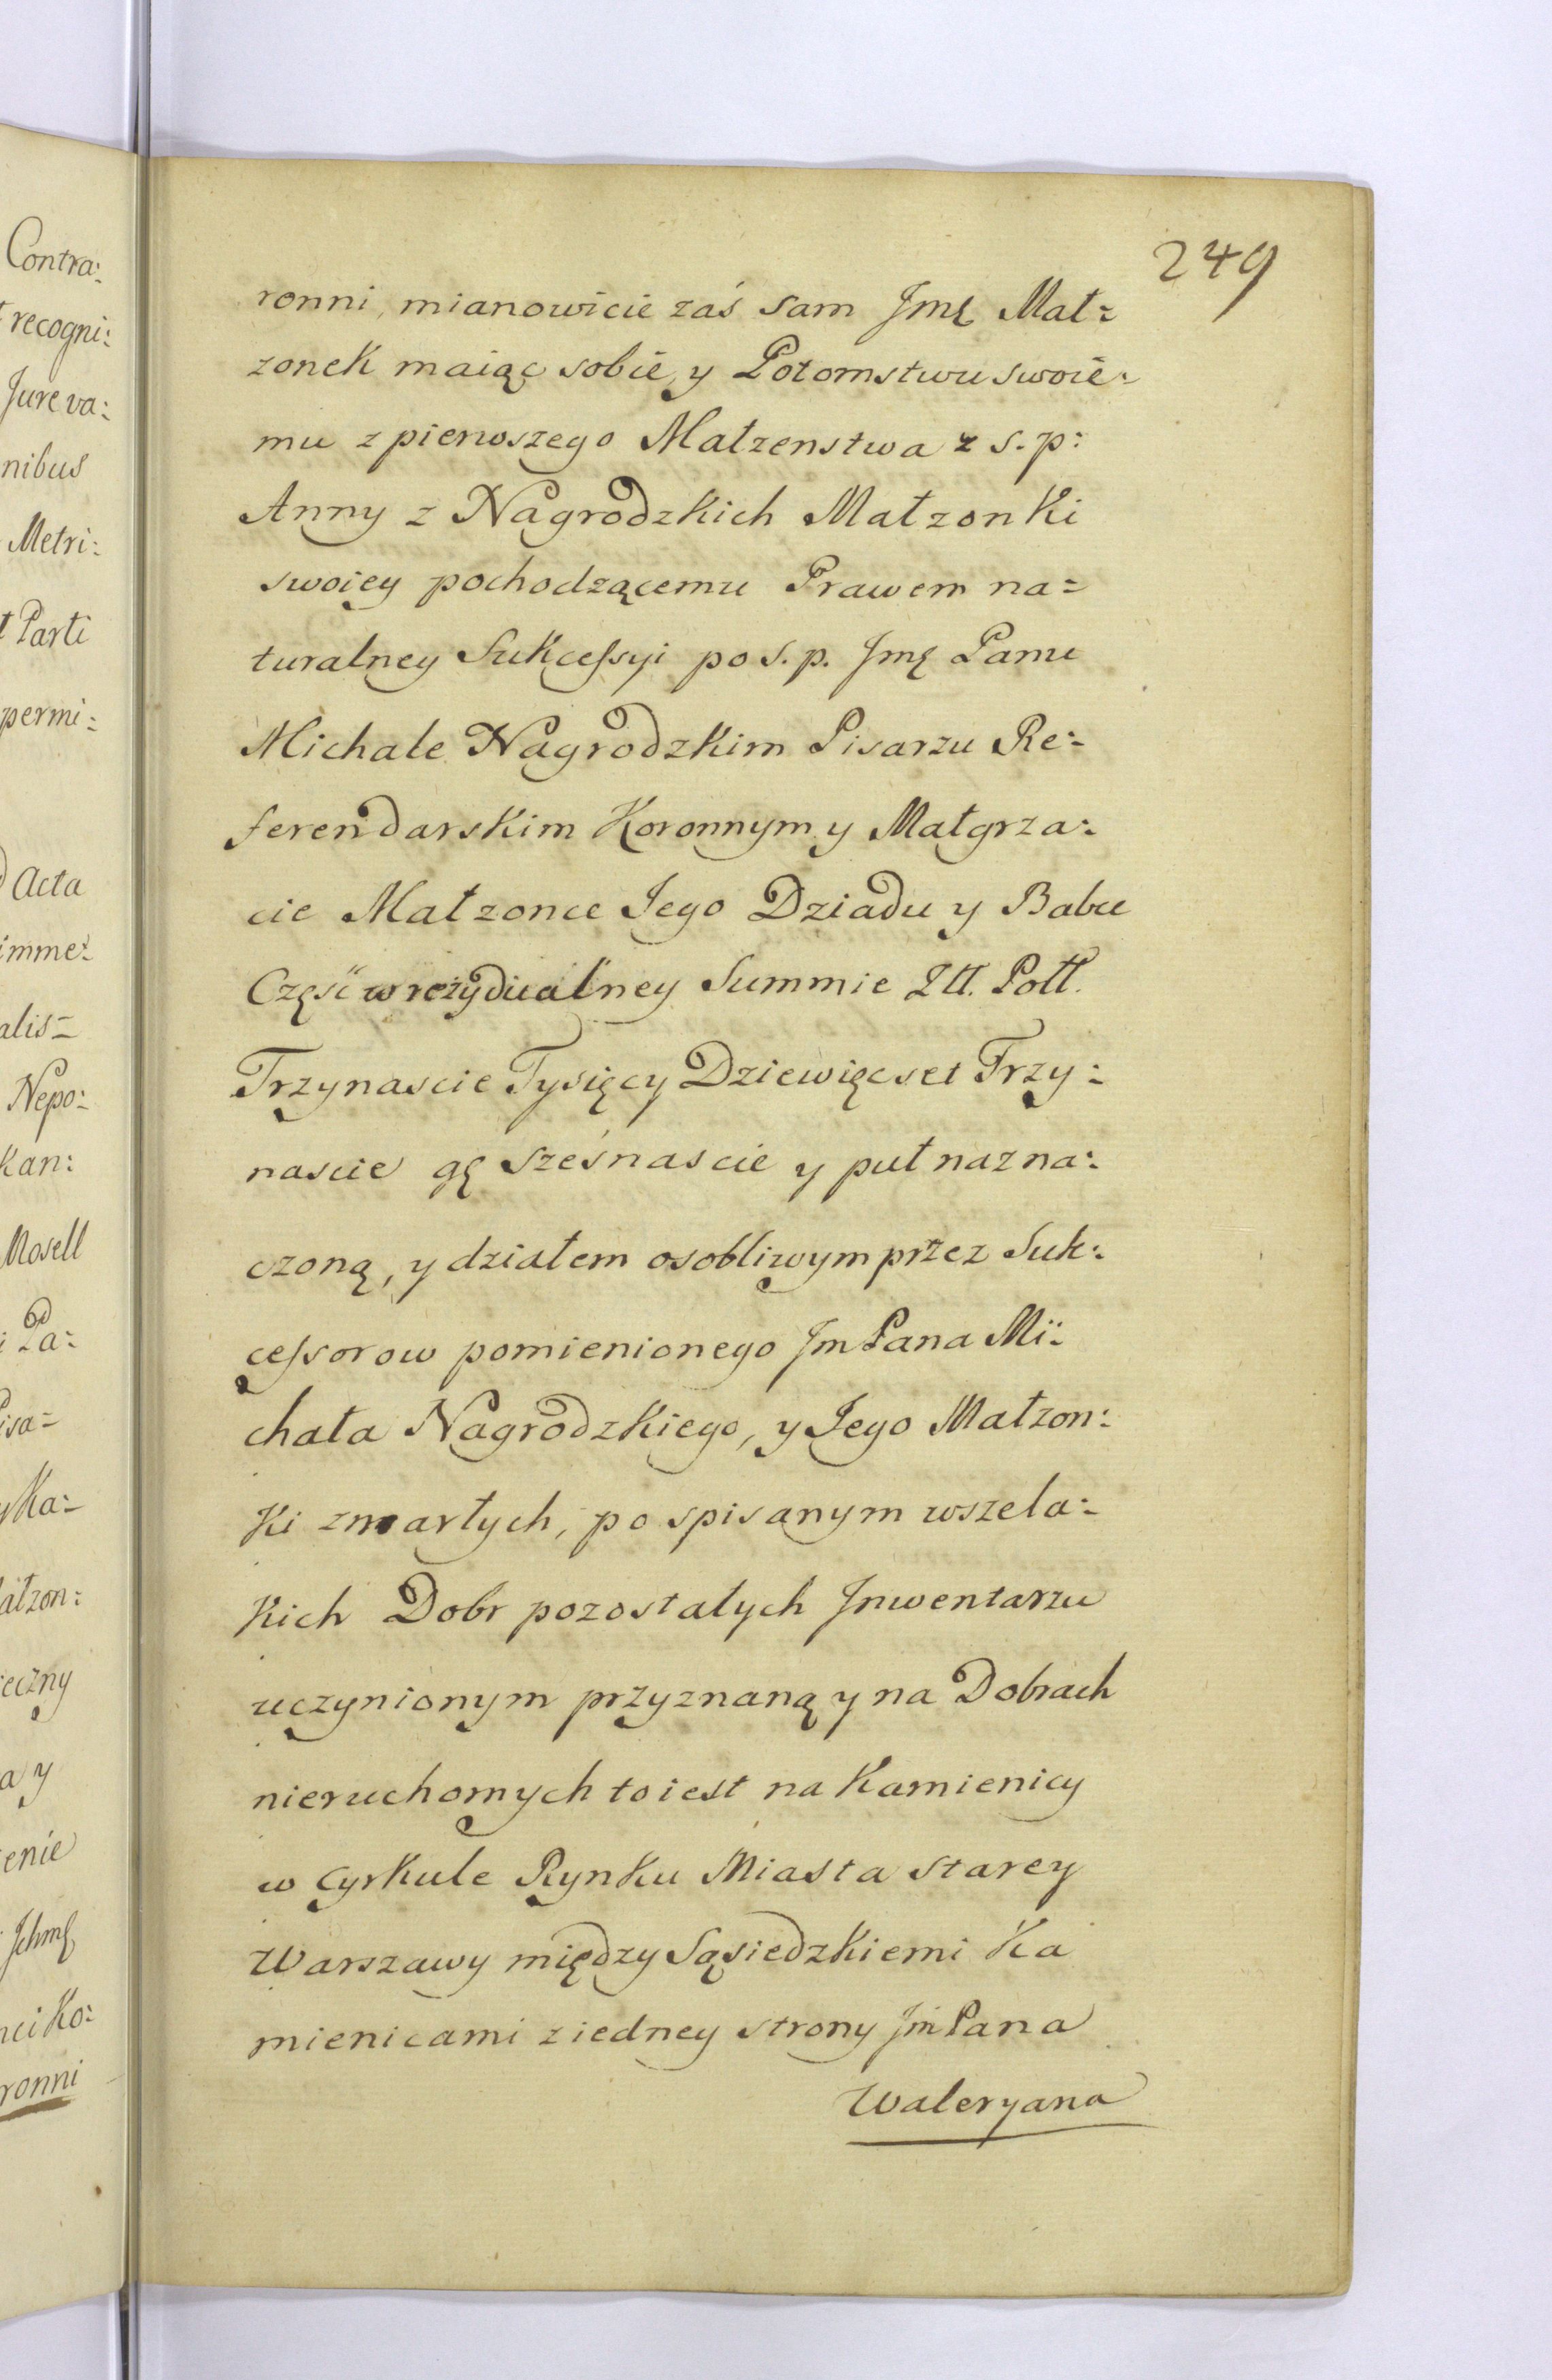 249
Contra:
recogni:
Jure va:
nibus
Metri:
Parti
permi:
Acta
imme:
alis=
Nepo:
kan:
Mosell
Pa:
Pisa=
Ka:
atzon:
ieczny
a y
enie
Jchmę
nci Ko:
ronni
ronni, mianowicie zaś sam Jmę Mał=
zonek maiąc sobie y Potomstwu swoie:
mu z pierwszego Małzenstwa z s. p:
Anny z Nagrodzkich Małzonki
swoiey pochodzącemu Prawem na=
turalney Sukcessyi po s. p. Jmę Panu
Michale Nagrodzkim Pisarzu Re:
ferendarskim Koronnym y Małgrza:
cie Małzonce Jego Dziadu y Babce
Część w rezydualney Summie Złł. Poll.
Trzynascie Tysięcy Dziewięcset Trzy:
nascie gę sześnascie y puł nazna:
czoną, y działem osobliwym przez Suk:
cessorow pomienionego Jm Pana Mi:
chała Nagrodzkiego, y Jego Małzon:
ki zmarłych, po spisanym wszela:
kich Dobr pozostałych Jnwentarzu
uczynionym przyznaną y na Dobrach
nieruchomych to iest na Kamienicy
w Cyrkule Rynku Miasta Starey
Warszawy między Sąsiedzkiemi Ka
mienicami z iedney strony Jm Pana
Waleryana